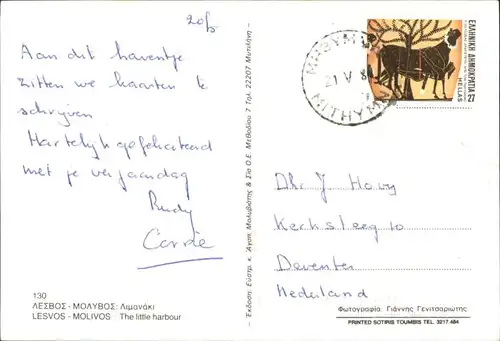 20/5
Aan dit haventje
zitten we kaarten te
schrijven
Hartelijk gefeliciteerd
met je verjaardag
Rudy
Corrie
130
ΛΕΣΒΟΣ - ΜΟΛΥΒΟΣ: Λιμανάκι
LESVOS - MOLIVOS The little harbour
Έκδοση: Εύστρ. κ. Άγαπ. Μολυβιάτης & Σία Ο.Ε. Μεθοδίου 7 Τηλ. 22207 Μυτιλήνη
ΜΗΘΥΜΝΑ
21 V 8
MITHYMNA
ΕΛΛΗΝΙΚΗ ΔΗΜΟΚΡΑΤΙΑ 27
HELLAS
Dhr J
Kerksteeg 10
Deventer
Nederland
Φωτογραφία: Γιάννης Γενιτσαριώτης
PRINTED SOTIRIS TOUMBIS TEL. 3217.484